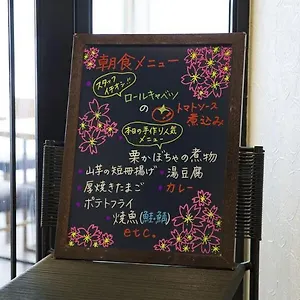 朝食メニュー
スタッフ
イチオシ!!
ロールキャベツ
の トマトソース
煮込み
本日の手作り人気
メニュー
栗かぼちゃの煮物
・山芋の短冊揚げ ・湯豆腐
・厚焼きたまご ・カレー
・ポテトフライ
・焼魚(鮭・鯖)
etc.